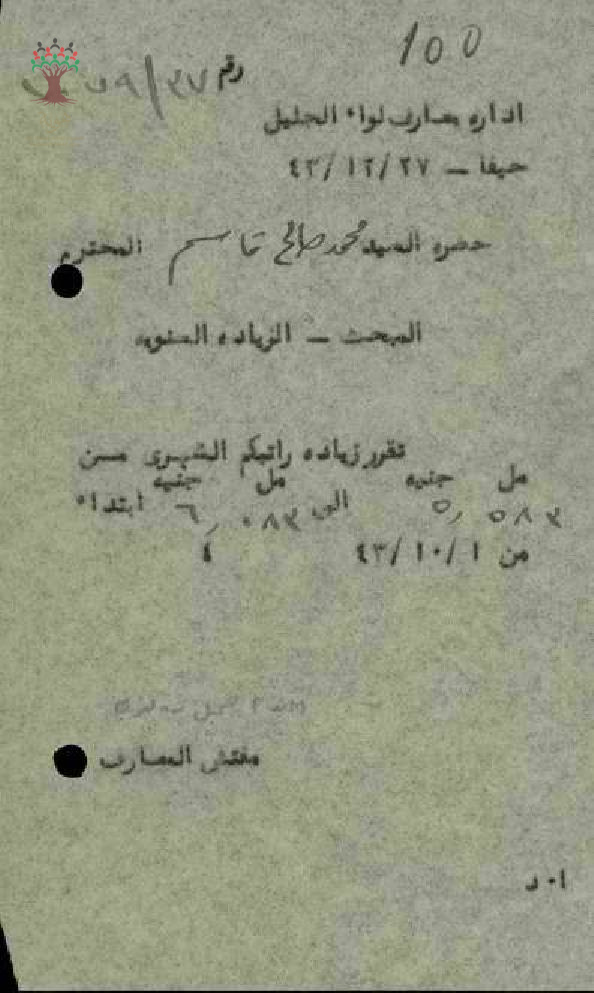 100
رقم ٣٧/٥٩
اداره معارف لواء الجليل
حيفا – ٢٧ /١٢ /٤٣
حضره السيد محمد صالح قاسم المحترم
المبحث – الزياده السنويه
تقرر زياده راتبكم الشهري من
مل جنيه مل جنيه
٥٨٣ ,٥ الى ٠٨٣ ,٦ ابتداء
من ١ /١٠ /٤٣
مفتش المعارف
ا٠ د